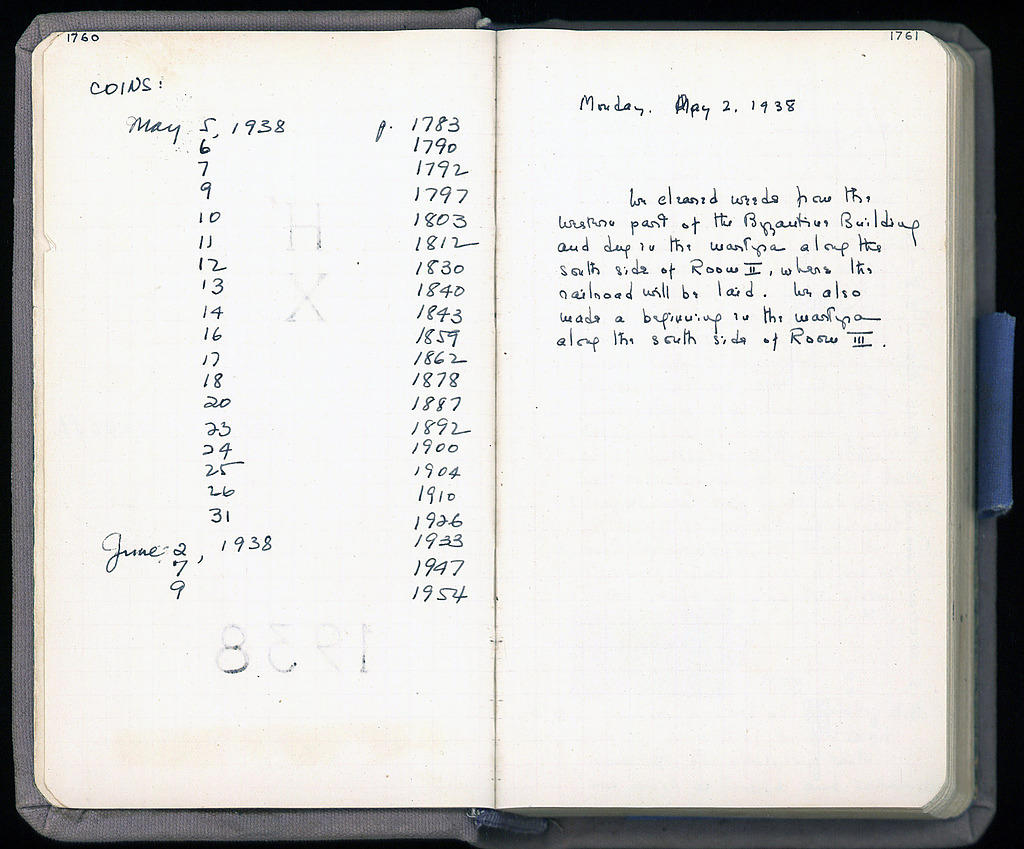 1760
COINS:
May 5, 1938 p. 1783
6 1790
7 1792
9 1797
10 1803
11 1812
12 1830
13 1840
14 1843
16 1859
17 1862
18 1878
20 1887
23 1892
24 1900
25 1904
26 1910
31 1926
June 2, 1938 1933
7 1947
9 1954
H'
X
1938
1761
Monday. May 2, 1938
We cleared weeds from the
western part of the Byzantine Building
and dug in the martyra along the
south side of Room II, where the
railroad will be laid. We also
made a beginning in the martyra
along the south side of Room III.